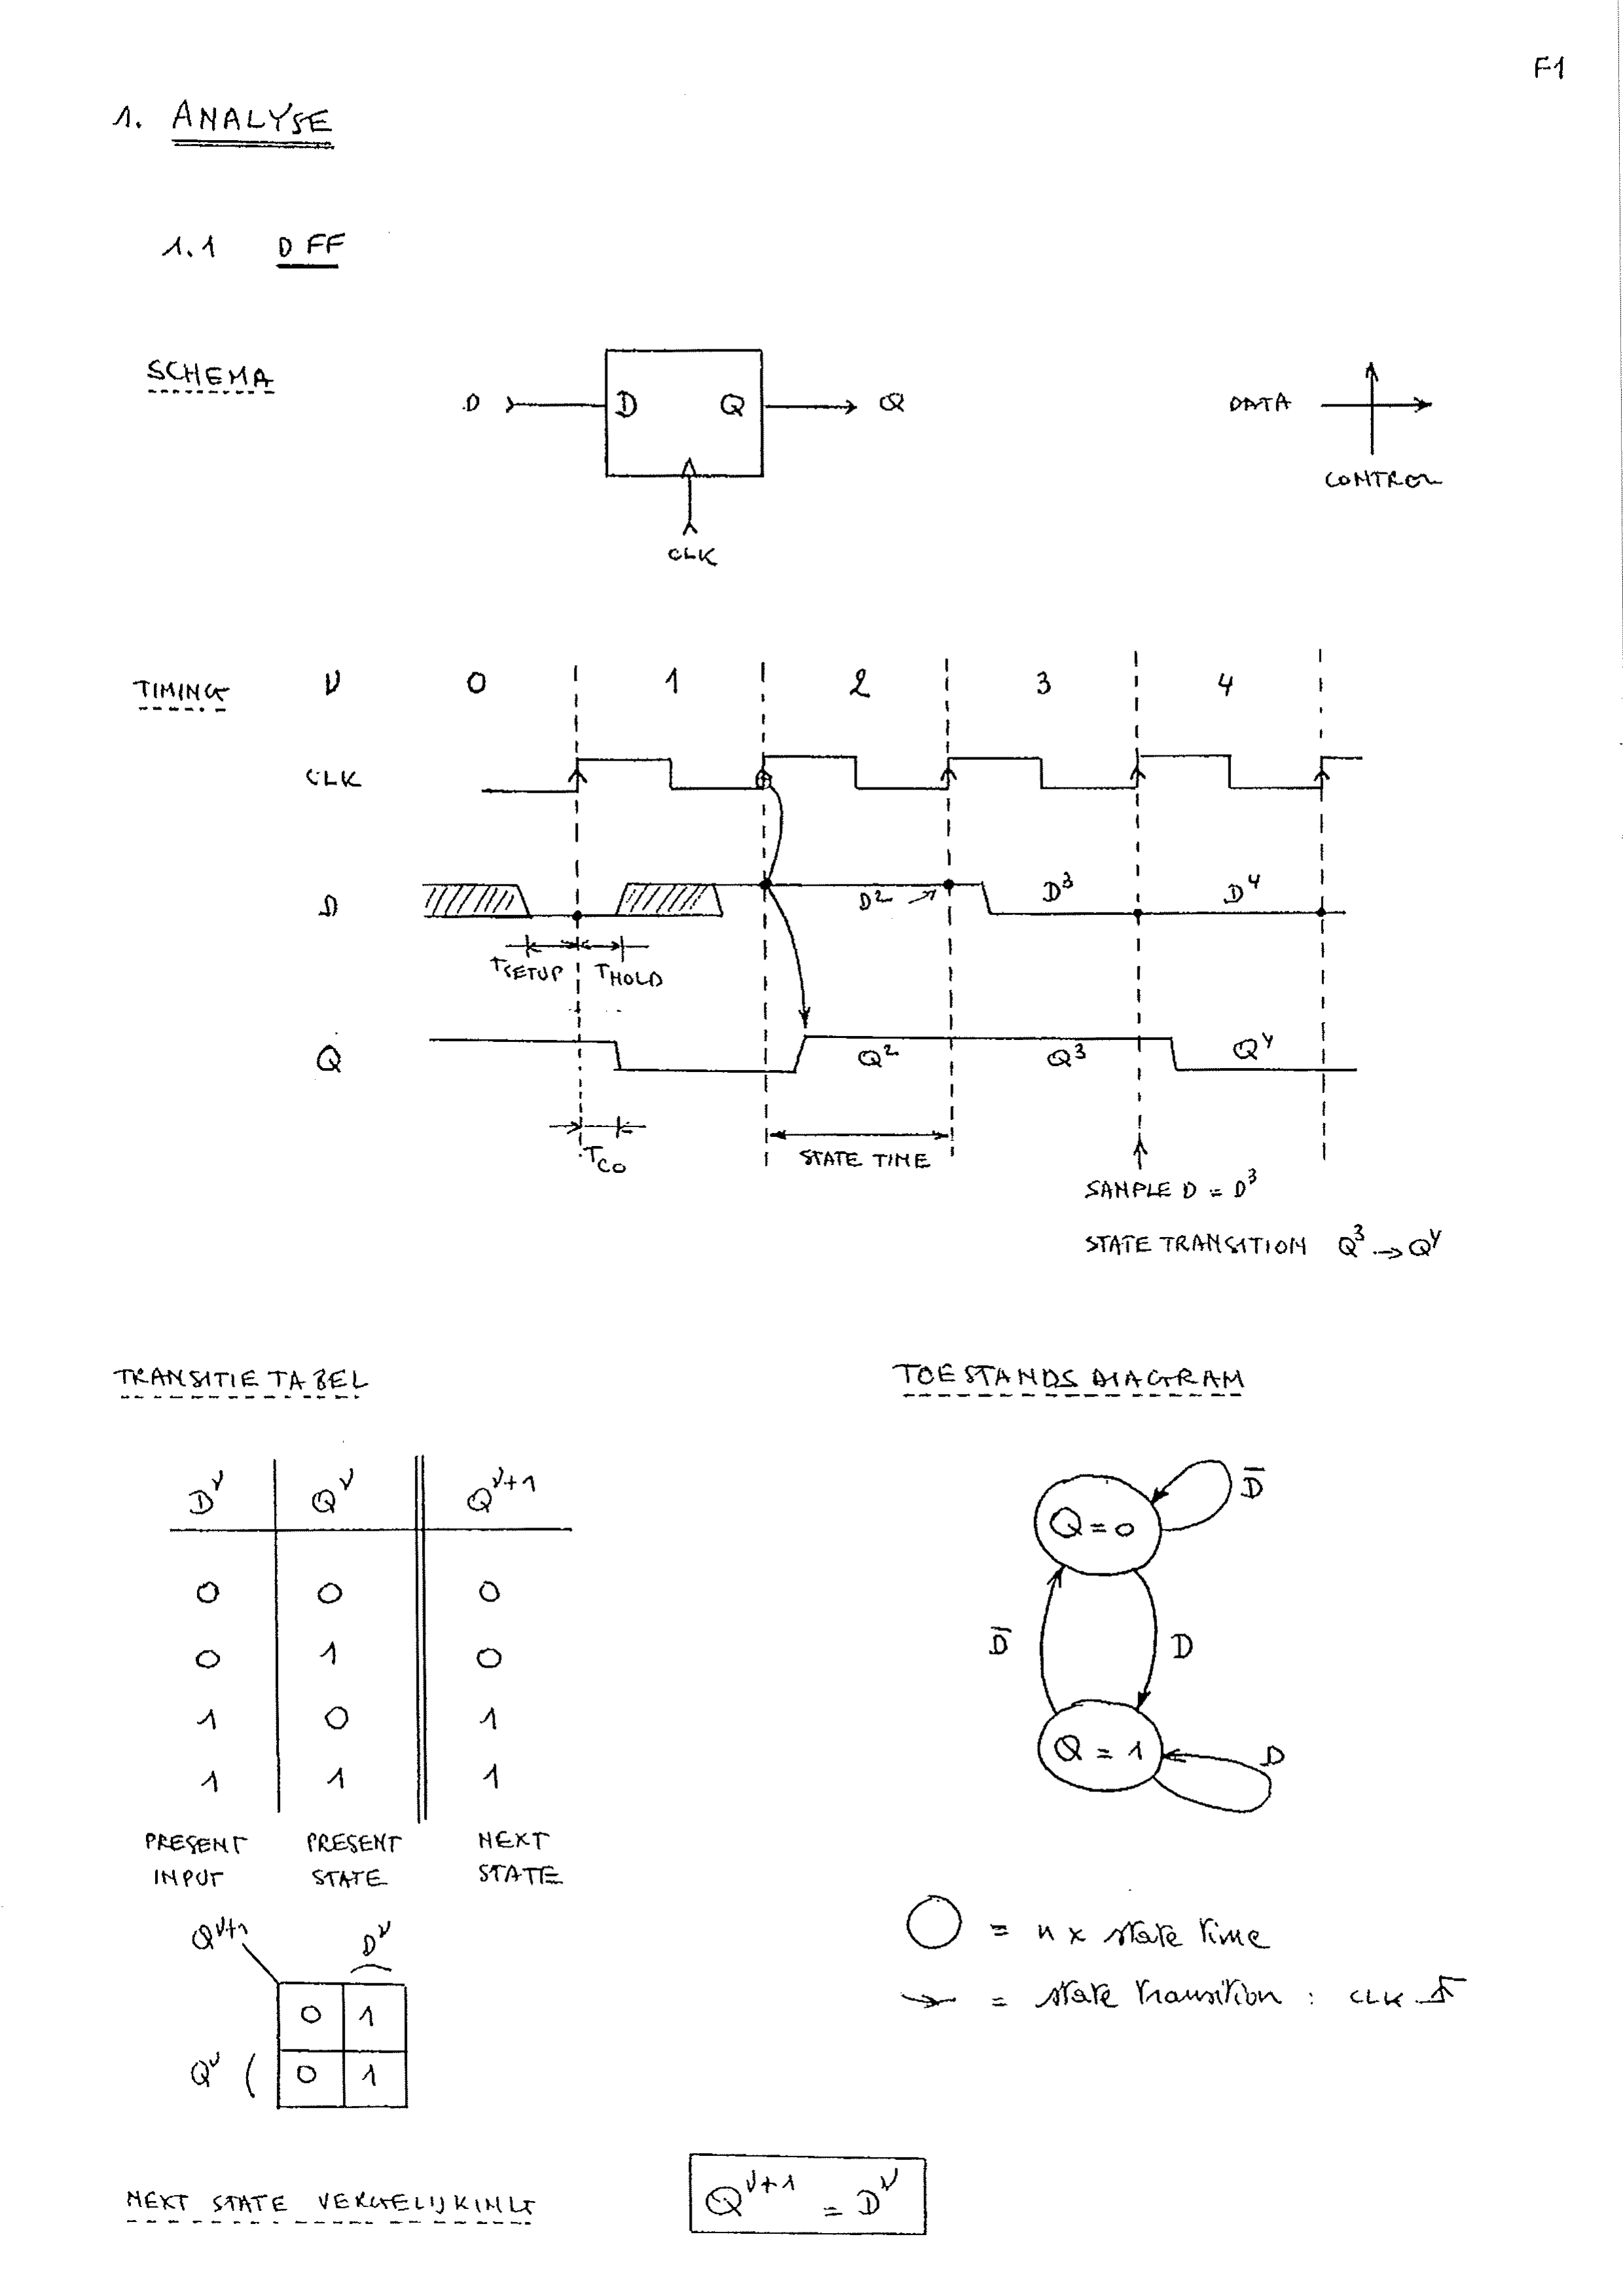 F1
1. ANALYSE
1.1 DFF
SCHEMA
D D Q Q
CLK
DATA
CONTROL
TIMING ν 0 1 2 3 4
CLK
D D² D³ D⁴
TSETUP THOLD
Q Q² Q³ Q⁴
TCO
STATE TIME
SAMPLE D = D³
STATE TRANSITION Q³ → Q⁴
TRANSITIE TABEL
D^ν Q^ν Q^ν+1
0 0 0
0 1 0
1 0 1
1 1 1
PRESENT INPUT
PRESENT STATE
NEXT STATE
Q^ν+1 D^ν
0 1
Q^ν 0 1
TOESTANDS DIAGRAM
Q = 0 D̅
D̅ D
Q = 1 D
= n x state time
→ = state transition : CLK
NEXT STATE VERGELIJKING
Q^ν+1 = D^ν